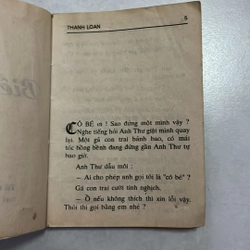 THANH LOAN
5
CÔ BÉ ơi ! Sao đứng một mình vậy ?
Nghe tiếng hỏi Anh Thư giật mình quay
lại. Một gã con trai bảnh bao, có mái
tóc bồng bềnh đang đứng gần Anh Thư tự
bao giờ.
Anh Thư dẩu môi :
— Ai cho phép anh gọi tôi là "cô bé" ?
Gã con trai cười tinh nghịch.
— Ồ nếu không thích thì xin lỗi vậy.
Thôi thì gọi bằng em nhé ?